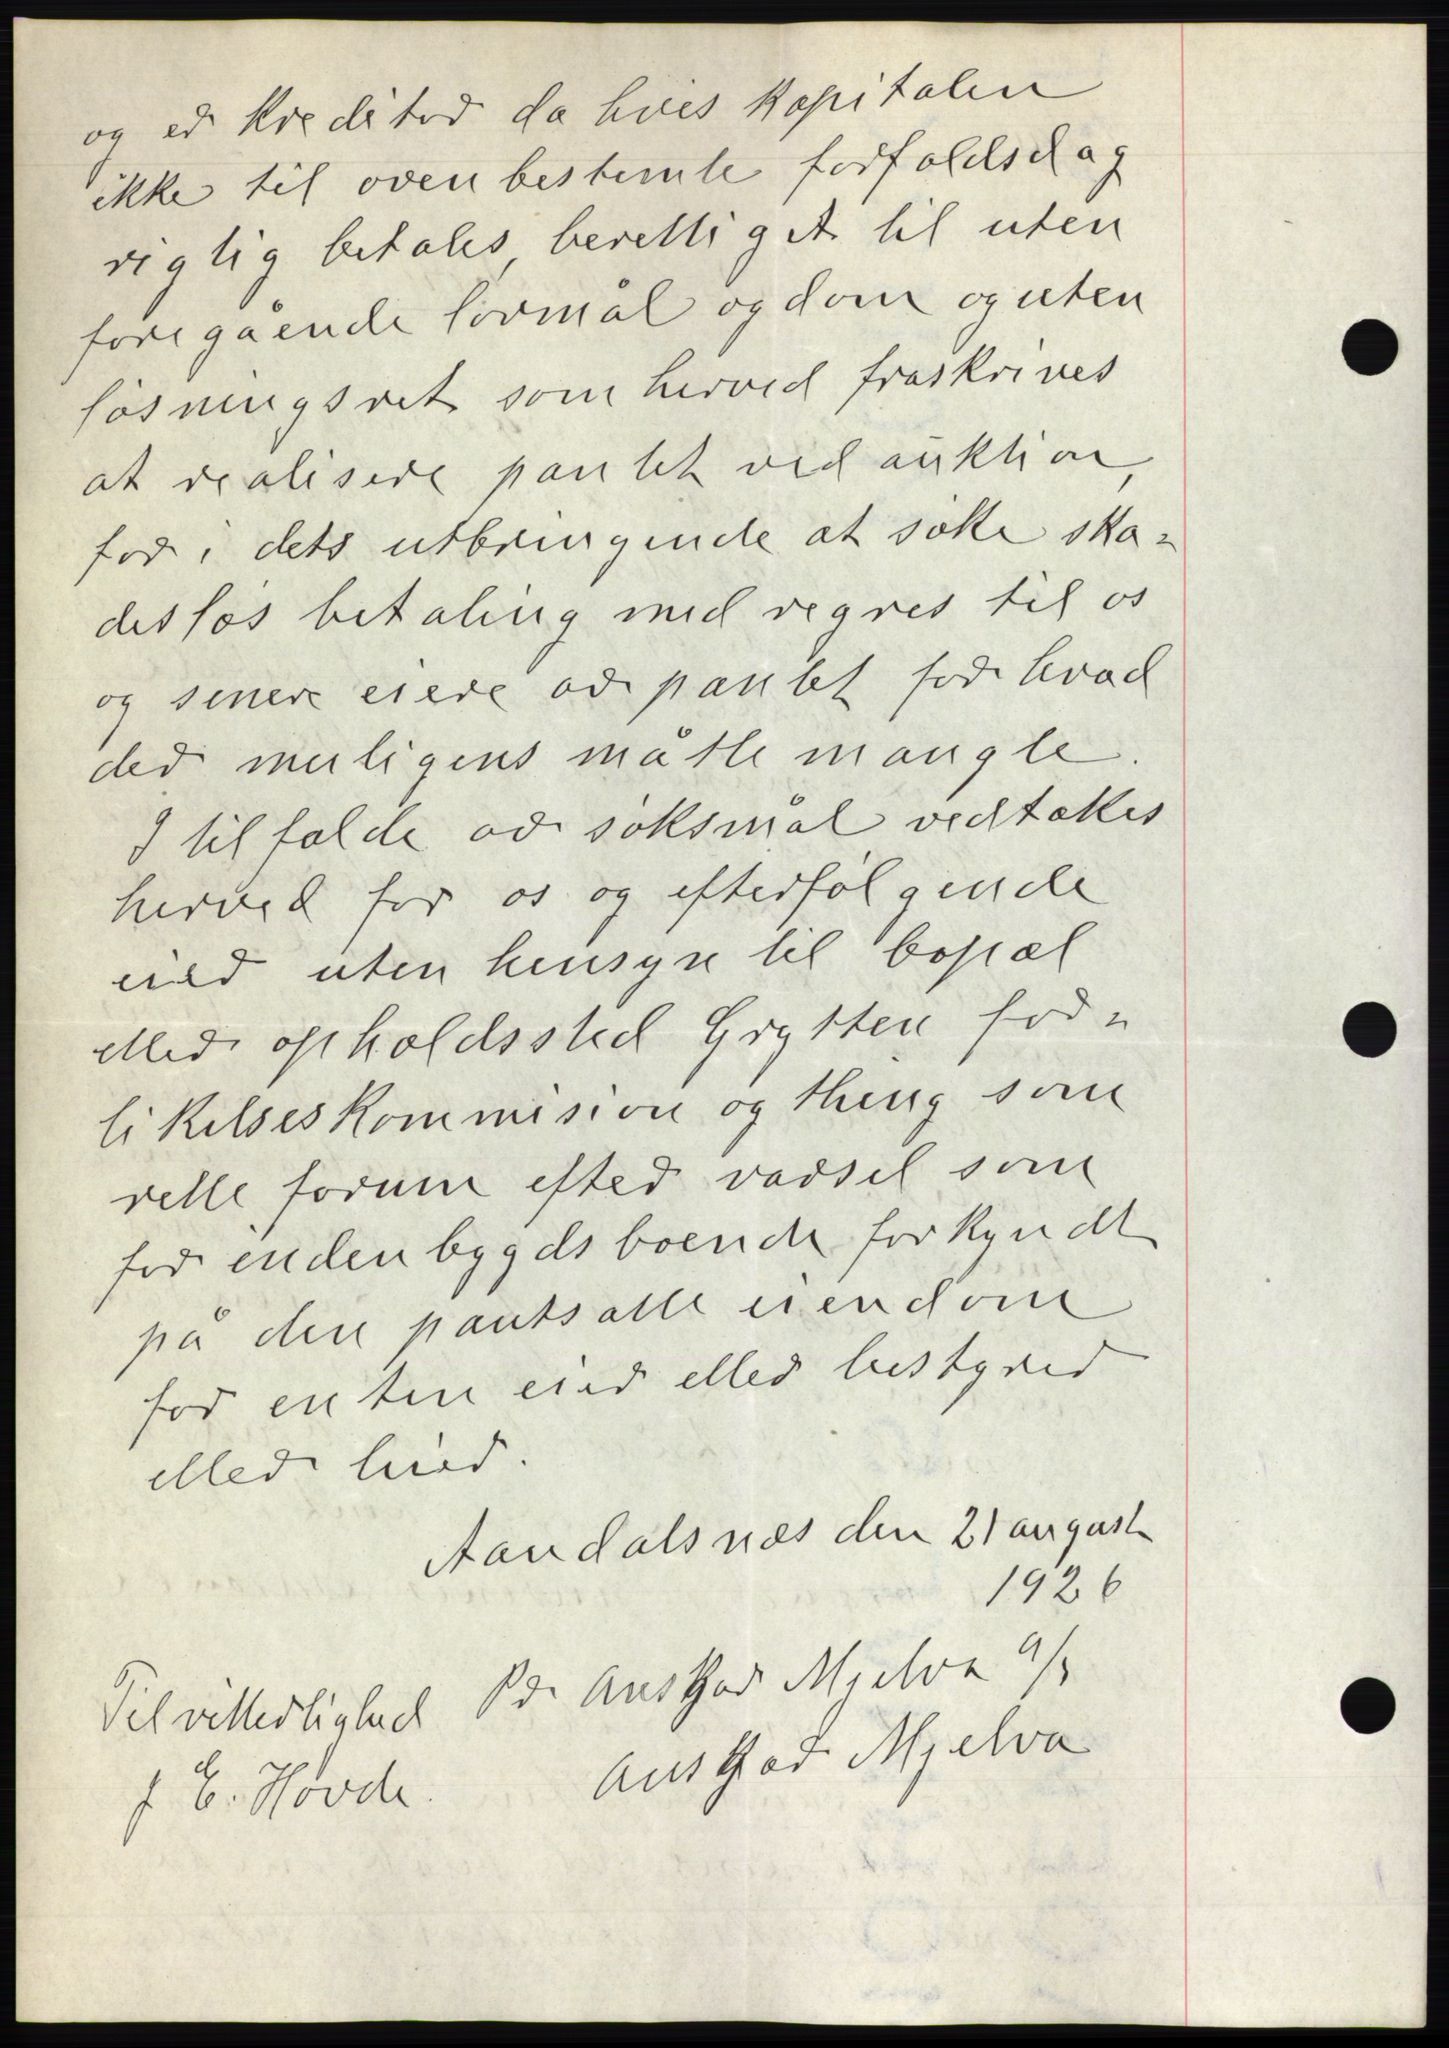 og er kreditor da hvis kapitalen
ikke til ovenbestemte forfaldsdag
rigtig betales, berettiget til uten
foregående lovmål og dom og uten
løsningsret som herved fraskrives
at realisere pantet ved auktion,
for i dets utbringende at søke ska=
desløs betaling med regres til os
og senere eiere av pantet for hvad
der muligens måtte mangle.
I tilfælde av søksmål vedtakes
herved for os og efterfølgende
eier uten hensyn til bopæl
eller opholdssted Grytten for=
likelseskommision og thing som
rette forum efter varsel som
for indenbygdsboende forkyndt
på den pantsatte eiendom
for enten eier eller bestyrer
eller leier.
Aandalsnæs den 21 august
1926
Til vitterlighed Pr Anskar Mjelva A/S
J E. Hovde. Anskar Mjelva